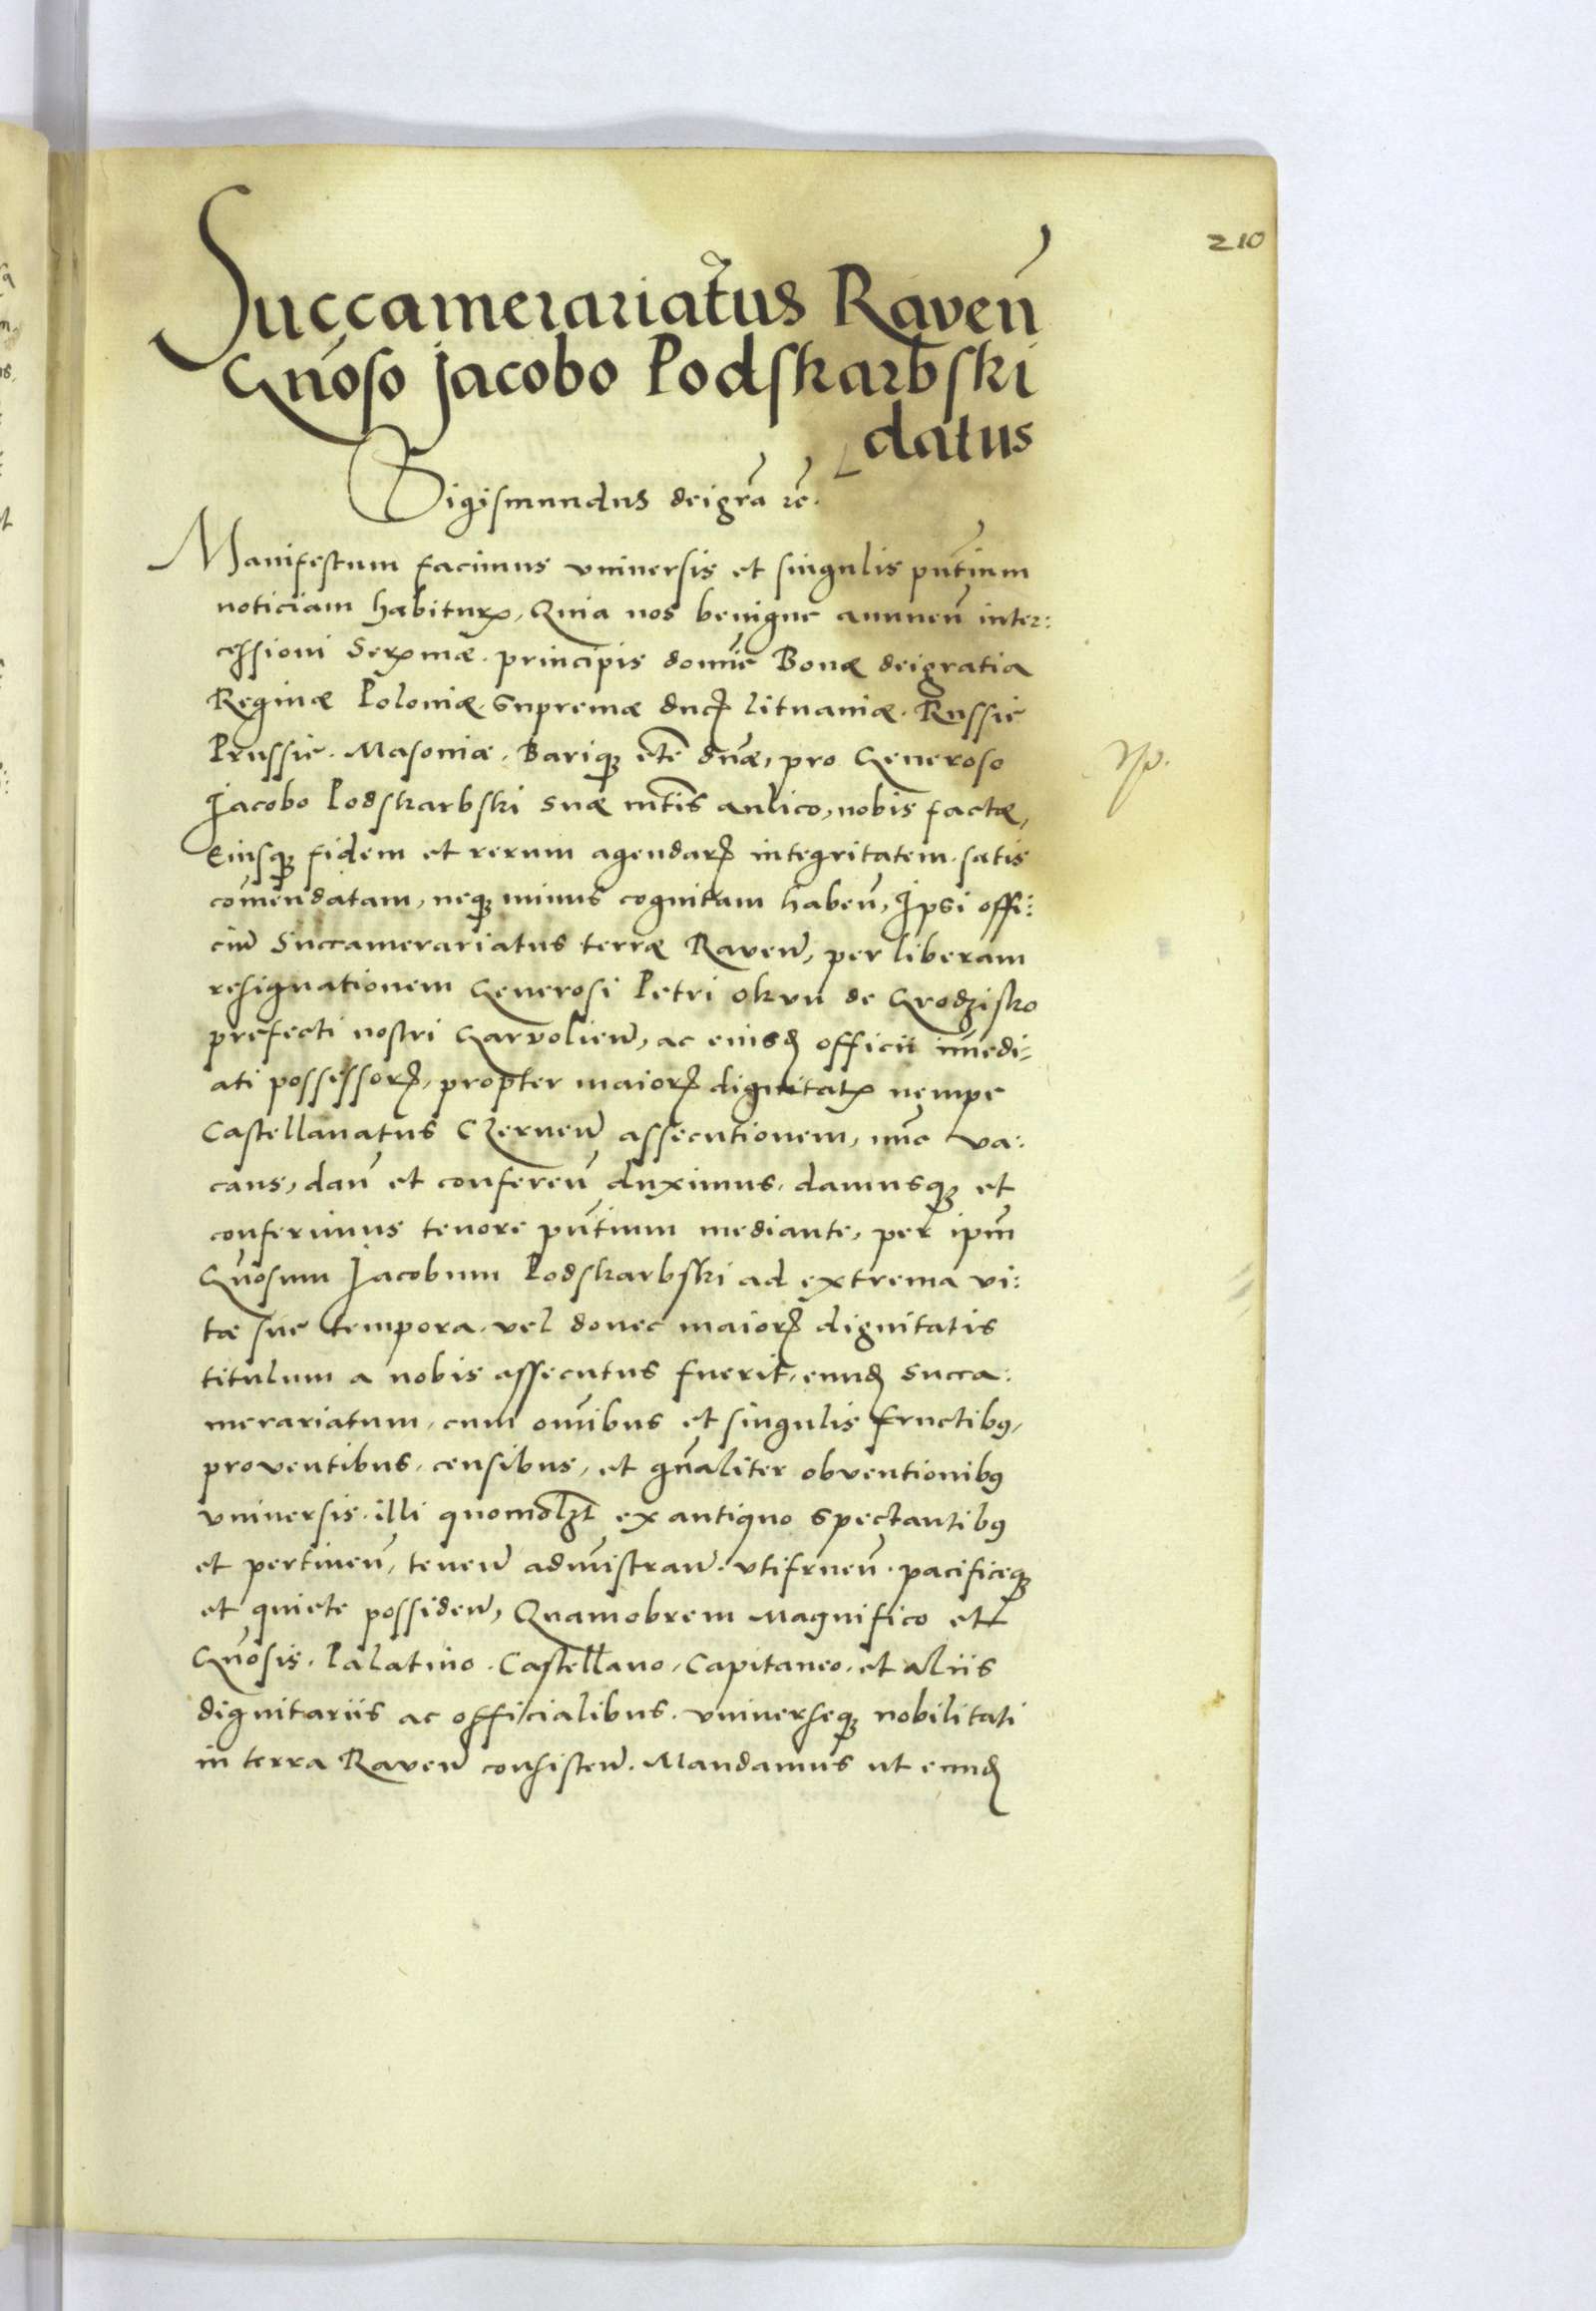 210
Succamerariatus Raveñ
Gnõso Jacobo Podskarbski
datus
Sigismundus deigrã rc̃.
Manifestum facimus vniversis et singulis pñtium
noticiam habiturꝝ, Quia nos benigne annueñ inter:
cessioni Serꝝmæ. principis domiñe Bonæ deigratia
Reginæ Poloniæ. Supremæ ducꝭ lituaniæ. Russie
Prussie. Masoniæ. Bariqꝫ etc̃ dnæ, pro Generoso
Jacobo Podskarbski suæ mtis̃ aulico, nobis factæ,
Eiusqꝫ fidem et rerum agendarꝝ integritatem. satis
com̃endatam, neqꝫ minus cognitam habeñ, Ipsi offi:
ciũ Succamerariatus terræ Raveñ, per liberam
resignationem Generosi Petri okvn de Grodzisko
prefecti nostri Garvolieñ, ac eiusđ officii im̃edi:
ati possessorꝭ, propter maiorꝭ dignitatꝭ nempe
Castellanatus Czerneñ assecutionem, nũc va:
cans, dañ et confereñ duximus. damusqꝫ et
conferimus tenore pñtium mediante, per ipm̃
Gnõsum Jacobum Podskarbski ad extrema vi:
tæ sue tempora. vel donec maiorꝭ dignitatis
titulum a nobis assecutus fuerit, eunđ succa:
merariatum, cum om̃ibus et singulis fructibꝰ,
proventibus, censibus, et gñaliter obventionibꝰ
vniversis. illi quomodolꝫt ex antiquo spectantibꝰ
et pertineñ, teneñ adm̃istrañ. vtifrueñ. pacificeqꝫ
et quiete possideñ, Quamobrem Magnifico et
Gnõsis. Palatino. Castellano, Capitaneo. et aliis
dignitariis ac officialibus. vniverseqꝫ nobilitati
in terra Raveñ consisteñ. Mandamus ut eunđ